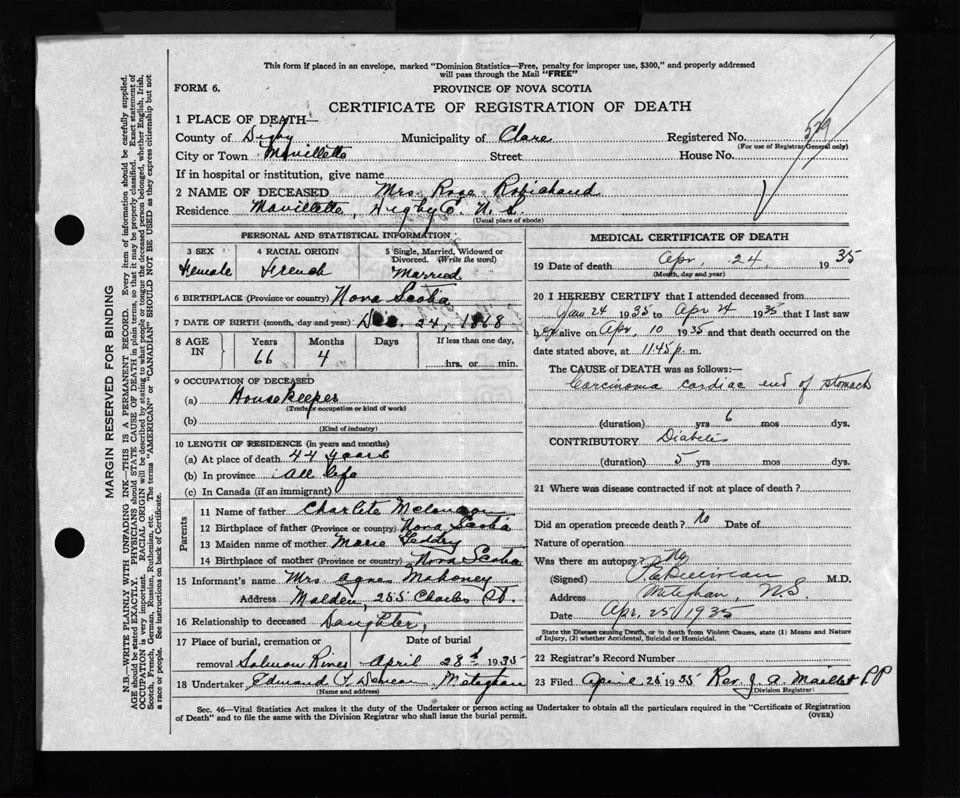 This form if placed in an envelope, marked "Dominion Statistics—Free, penalty for improper use, $300," and properly addressed
will pass through the Mail "FREE"
FORM 6.
PROVINCE OF NOVA SCOTIA
CERTIFICATE OF REGISTRATION OF DEATH
1 PLACE OF DEATH—
County of Digby Municipality of Clare Registered No. 579
(For use of Registrar General only)
City or Town Mavillette Street House No.
If in hospital or institution, give name
2 NAME OF DECEASED Mrs. Rose Robichaud
Residence Mavillette, Digby C. N. S.
(Usual place of abode)
PERSONAL AND STATISTICAL INFORMATION
3 SEX 4 RACIAL ORIGIN 5 Single, Married, Widowed or
Divorced. (Write the word)
Female French Married
6 BIRTHPLACE (Province or country) Nova Scotia
7 DATE OF BIRTH (month, day and year) Dec. 24, 1868
8 AGE IN Years Months Days If less than one day,
66 4 hrs. or min.
9 OCCUPATION OF DECEASED
(a) Housekeeper
(Trade or occupation or kind of work)
(b)
(Kind of industry)
10 LENGTH OF RESIDENCE (in years and months)
(a) At place of death 44 years
(b) In province All life
(c) In Canada (if an immigrant)
Parents
11 Name of father Charlite Melancon
12 Birthplace of father (Province or country) Nova Scotia
13 Maiden name of mother Marie
14 Birthplace of mother (Province or country) Nova Scotia
15 Informant's name Mrs. Agnes Mahoney
Address Malden, 255 Charles St.
16 Relationship to deceased Daughter,
17 Place of burial, cremation or Date of burial
removal Salmon River April 28d 1935
18 Undertaker Edmund Meteghan
(Name and address)
MEDICAL CERTIFICATE OF DEATH
19 Date of death Apr. 24, 1935
(Month, day and year)
20 I HEREBY CERTIFY that I attended deceased from
Jan 24 1935 to Apr 24 1935 that I last saw
her alive on Apr. 10 1935 and that death occurred on the
date stated above, at 11.45 p. m.
The CAUSE of DEATH was as follows:—
Carcinoma cardiac end of stomach
(duration) yrs 6 mos dys.
CONTRIBUTORY Diabetes
(duration) 5 yrs mos. dys.
21 Where was disease contracted if not at place of death?
Did an operation precede death? No Date of
Nature of operation
Was there an autopsy? No
(Signed) M.D.
Address Meteghan, N.S.
Date Apr. 25, 1935
State the Disease causing Death, or in death from Violent Causes, state (1) Means and Nature
of Injury, (2) whether Accidental, Suicidal or Homicidal.
22 Registrar's Record Number
23 Filed April 28 1935 Rev. J. A. Maillet P.P
(Division Registrar)
Sec. 46—Vital Statistics Act makes it the duty of the Undertaker or person acting as Undertaker to obtain all the particulars required in the "Certificate of Registration
of Death" and to file the same with the Division Registrar who shall issue the burial permit. (OVER)
MARGIN RESERVED FOR BINDING
N.B.—WRITE PLAINLY WITH UNFADING INK—THIS IS A PERMANENT RECORD. Every item of information should be carefully supplied.
AGE should be stated EXACTLY. PHYSICIANS should state CAUSE OF DEATH in plain terms, so that it may be properly classified. Exact statement of
OCCUPATION is very important. RACIAL ORIGIN will be described by stating to what people or tongue the deceased person belonged, whether English, Irish,
Scotch, French, German, Russian, Ruthenian, etc. The terms "AMERICAN" or "CANADIAN" SHOULD NOT BE USED as they express citizenship but not
a race or people. See instructions on back of Certificate.